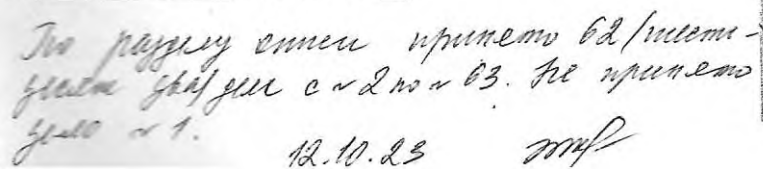 По разделу описи принято 62/шесть-
десят два/дел с № 2 по № 63. Не принято
дело № 1.
12.10.23